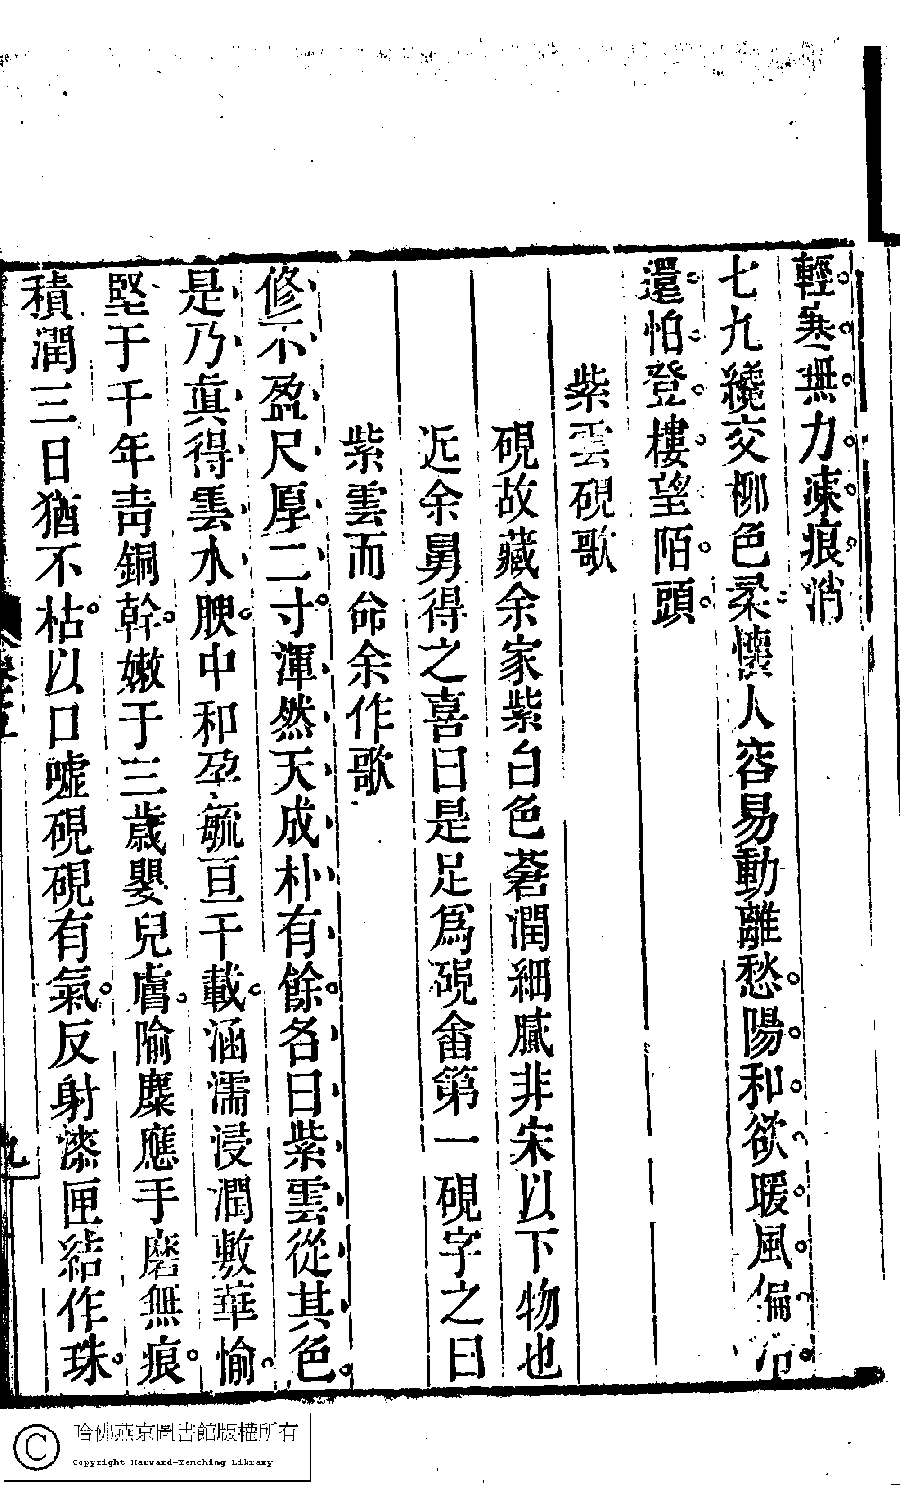 輕寒無力凍痕消
七九纔交柳色柔懷人容易動離愁陽和欲暖風偏冷
還怕登樓望陌頭
紫雲硯歌
硯故藏余家紫白色蒼潤細膩非宋以下物也
近余舅得之喜曰是足爲硯畬第一硯字之曰
紫雲而命余作歌
修不盈尺厚二寸渾然天成朴有餘名曰紫雲從其色
是乃眞得雲水腴中和孕毓亘千載涵濡浸潤敷華愉
堅于千年靑銅幹嫩于三歲嬰兒膚隃麋應手磨無痕
積潤三日猶不枯以口噓硯硯有氣反射漆匣結作珠
九
哈佛燕京圖書館版權所有
Copyright Harvard-Yenching Library